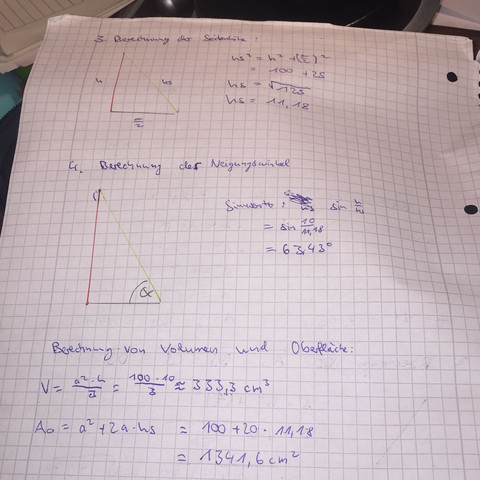 3. Berechnung der Seitenhöhe:
hs² = h² + (a/2)²
= 100 + 25
h
hs
hs = √125
hs = 11,18
a/2
4. Berechnung des Neigungswinkel
Sinuswerte: sin h/hs
= sin 10/11,18
= 63,43°
α
Berechnung von Volumen und Oberfläche:
V = a²·h/3 = 100·10/3 ≈ 333,3 cm³
Ao = a² + 2a·hs = 100 + 20 · 11,18
= 1341,6 cm²